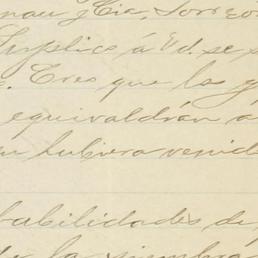 nau y Cia, Torreo
Suplico á Ud. se s
. Eres que la g
equivaldrán a
hubiera venid
tabilidades de
de la siembra